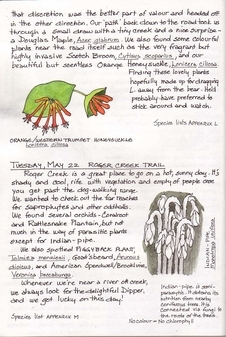 that discretion was the better part of valour and headed off
in the other direction. Our 'path' back down to the road took us
through a small draw with a tiny creek and a nice surprise -
a Douglas Maple, Acer glabrum. We also found some colourful
plants near the road itself such as the very fragrant but
highly invasive Scotch Broom, Cytisus scoparius, and our
beautiful but scentless Orange Honeysuckle, Lonicera ciliosa.
Finding these lovely plants
hopefully made up for dragging
L. away from the bear. He'd
probably have preferred to
stick around and watch.
Species lists Appendix L
ORANGE/WESTERN TRUMPET HONEYSUCKLE
Lonicera ciliosa
TUESDAY, MAY 22 ROGER CREEK TRAIL
Roger Creek is a great place to go on a hot, sunny day. It's
shady and cool, rife with vegetation and empty of people once
you get past the dog-walking zone.
We wanted to check out the far reaches
for saprophytes and other oddballs.
We found several orchids - Coralroot
and Rattlesnake Plantain, but not
much in the way of parasitic plants
except for Indian-pipe.
We also spotted PIGGYBACK PLANT,
Tolmiea menziesii, Goatsbeard, Aruncus
dioicus, and American Speedwell/Brooklime,
Veronica beccabunga.
Whenever we're near a river or creek,
we always look for the delightful Dipper,
and we got lucky on this day!
Species list APPENDIX M
INDIAN-PIPE
Monotropa uniflora
Indian-pipe is
nutrition from nearby
coniferous trees. It is
connected via fungi to
the roots of the trees.
No colour = No chlorophyll